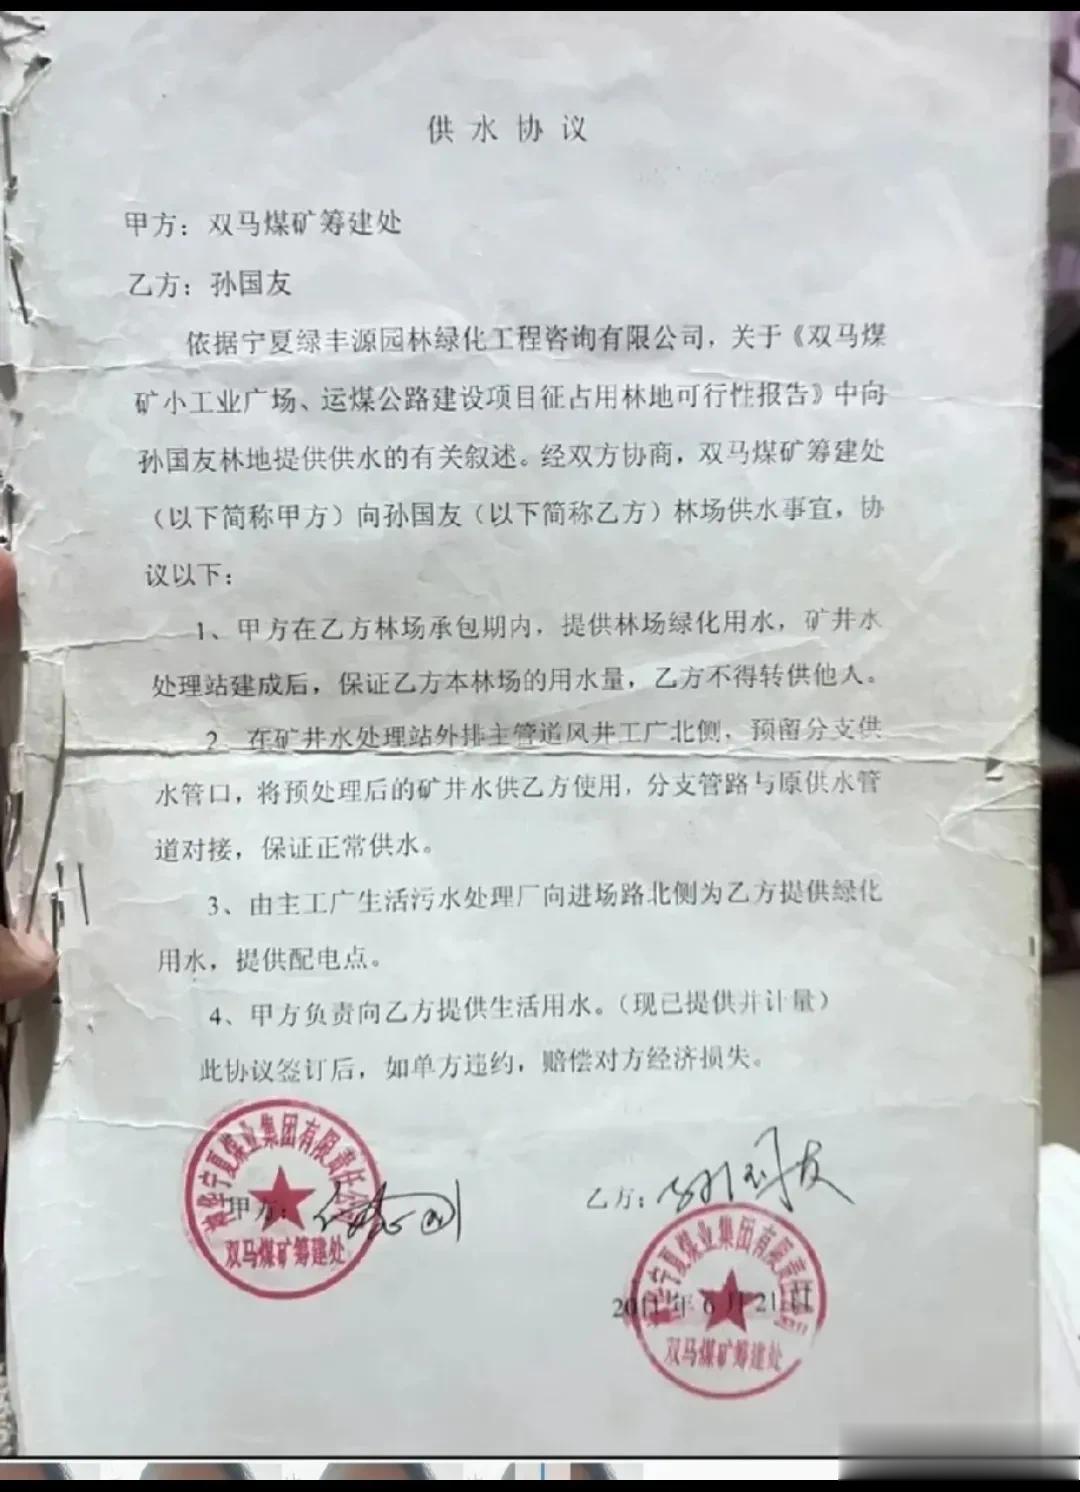 供水协议
甲方：双马煤矿筹建处
乙方：孙国友
依据宁夏绿丰源园林绿化工程咨询有限公司，关于《双马煤
矿小工业广场、运煤公路建设项目征占用林地可行性报告》中向
孙国友林地提供供水的有关叙述。经双方协商，双马煤矿筹建处
（以下简称甲方）向孙国友（以下简称乙方）林场供水事宜，协
议以下：
1、甲方在乙方林场承包期内，提供林场绿化用水，矿井水
处理站建成后，保证乙方本林场的用水量，乙方不得转供他人。
2、在矿井水处理站外排主管道风井工广北侧，预留分支供
水管口，将预处理后的矿井水供乙方使用，分支管路与原供水管
道对接，保证正常供水。
3、由主工广生活污水处理厂向进场路北侧为乙方提供绿化
用水，提供配电点。
4、甲方负责向乙方提供生活用水。（现已提供并计量）
此协议签订后，如单方违约，赔偿对方经济损失。
宁夏煤业集团有限责任公
甲方：
双马煤矿筹建处
乙方：孙国友
宁夏煤业集团有限责任
2011年6月21日
双马煤矿筹建处